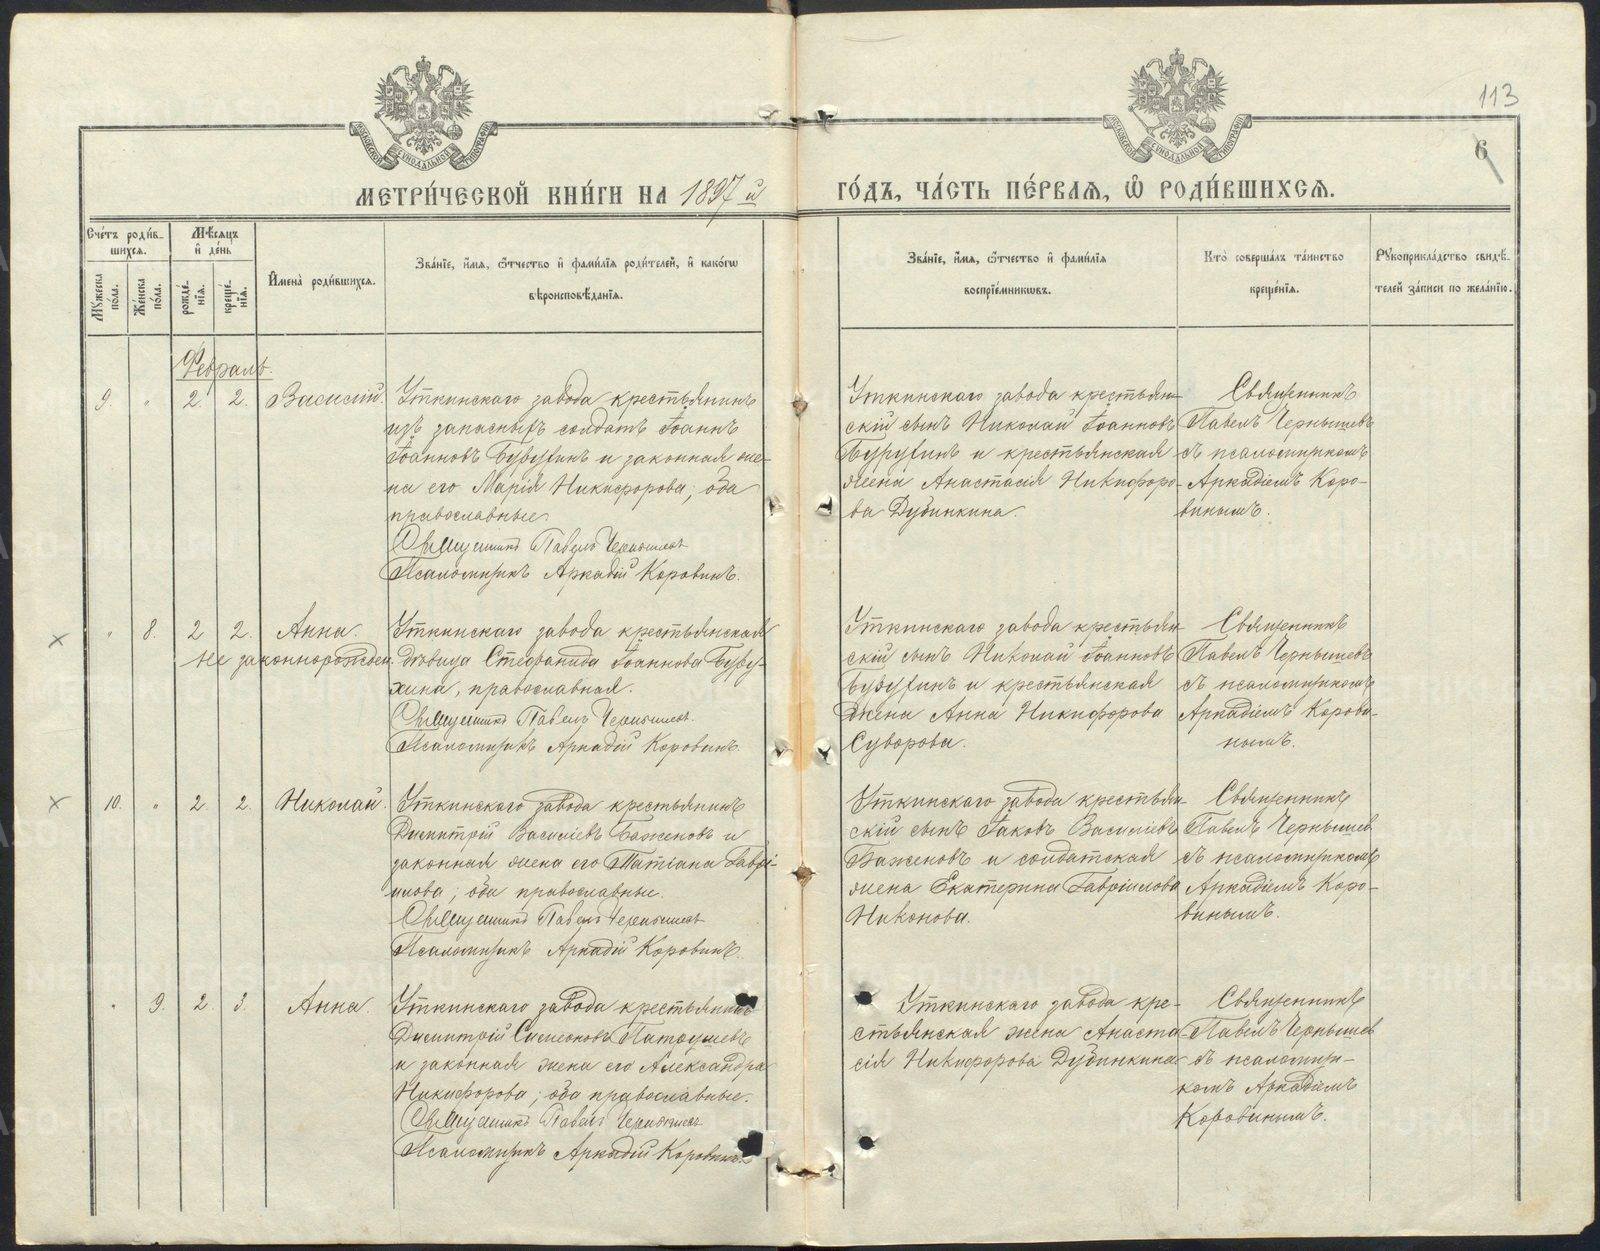 113
6
МЕТРИ́ЧЕСКОЙ КНИ́ГИ НА 1897 й
ГО́ДЪ, ЧА́СТЬ ПЕ́РВАЯ, Ѽ РОДИ́ВШИХСЯ.
Сче́тъ роди́в-
шихся.
Му́жеска
пола.
Же́нска
по́ла.
Мѣ́сяцъ
и҆ де́нь
рожде́-
нїя.
креще́-
нїя.
И҆мена̀ роди́вшихся.
Зва́нїе, и҆́мя, ѻ҆́тчество и҆ фами́лїя роди́телей, и҆ како́гѡ
вѣроисповѣ́данїя.
Зва́нїе, и҆́мя, ѻ҆́тчество и҆ фами́лїя
воспрїе́мникѡвъ.
Кто̀ соверша́лъ та́инство
креще́нїя.
Рꙋкоприкла́дство свидѣ́-
телей за́писи по жела́нїю.
Февраль.
9. " 2. 2. Василій.
Уткинскаго завода крестьянинъ
изъ запасныхъ солдатъ Іоаннъ
Іоанновъ Бузухинъ и законная же-
на его Марія Никифорова, оба
православные.
Священникъ Павелъ Чернышевъ
Псаломщикъ Аркадій Коровинъ.
Уткинскаго завода крестьян-
скій сынъ Николай Іоанновъ
Бузухинъ и крестьянская
жена Анастасія Никифоро-
ва Дубинкина.
Священникъ
Павелъ Чернышевъ
съ псаломщикомъ
Аркадіемъ Коро-
винымъ.
" 8. 2 2. Анна.
не законнорожден.
Уткинскаго завода крестьянская
дѣвица Стефанида Іоаннова Бузу-
хина, православная.
Священникъ Павелъ Чернышевъ.
Псаломщикъ Аркадій Коровинъ.
Уткинскаго завода крестьян-
скій сынъ Николай Іоанновъ
Бузухинъ и крестьянская
жена Анна Никифорова
Суворова.
Священникъ
Павелъ Чернышевъ
съ псаломщикомъ
Аркадіемъ Корови-
нымъ.
10. " 2. 2. Николай.
Уткинскаго завода крестьянинъ
Димитрій Василіевъ Баженовъ и
законная жена его Татіана Гаврі-
илова, оба православные.
Священникъ Павелъ Чернышевъ
Псаломщикъ Аркадій Коровинъ.
Уткинскаго завода крестьян-
скій сынъ Іаковъ Василіевъ
Баженовъ и солдатская
жена Екатерина Гавріилова
Никонова.
Священникъ
Павелъ Чернышев
съ псаломщикомъ
Аркадіемъ Коро-
винымъ.
" 9. 2. 3. Анна.
Уткинскаго завода крестьянинъ
Димитрій Симеоновъ Патрушевъ
и законная жена его Александра
Никифорова, оба православные.
Священникъ Павелъ Чернышевъ
Псаломщикъ Аркадій Коровинъ.
Уткинскаго завода кре-
стьянская жена Анаста-
сія Никифорова Дубинкина
Священникъ
Павелъ Чернышев
съ псаломщи-
комъ Аркадіемъ
Коровинымъ.